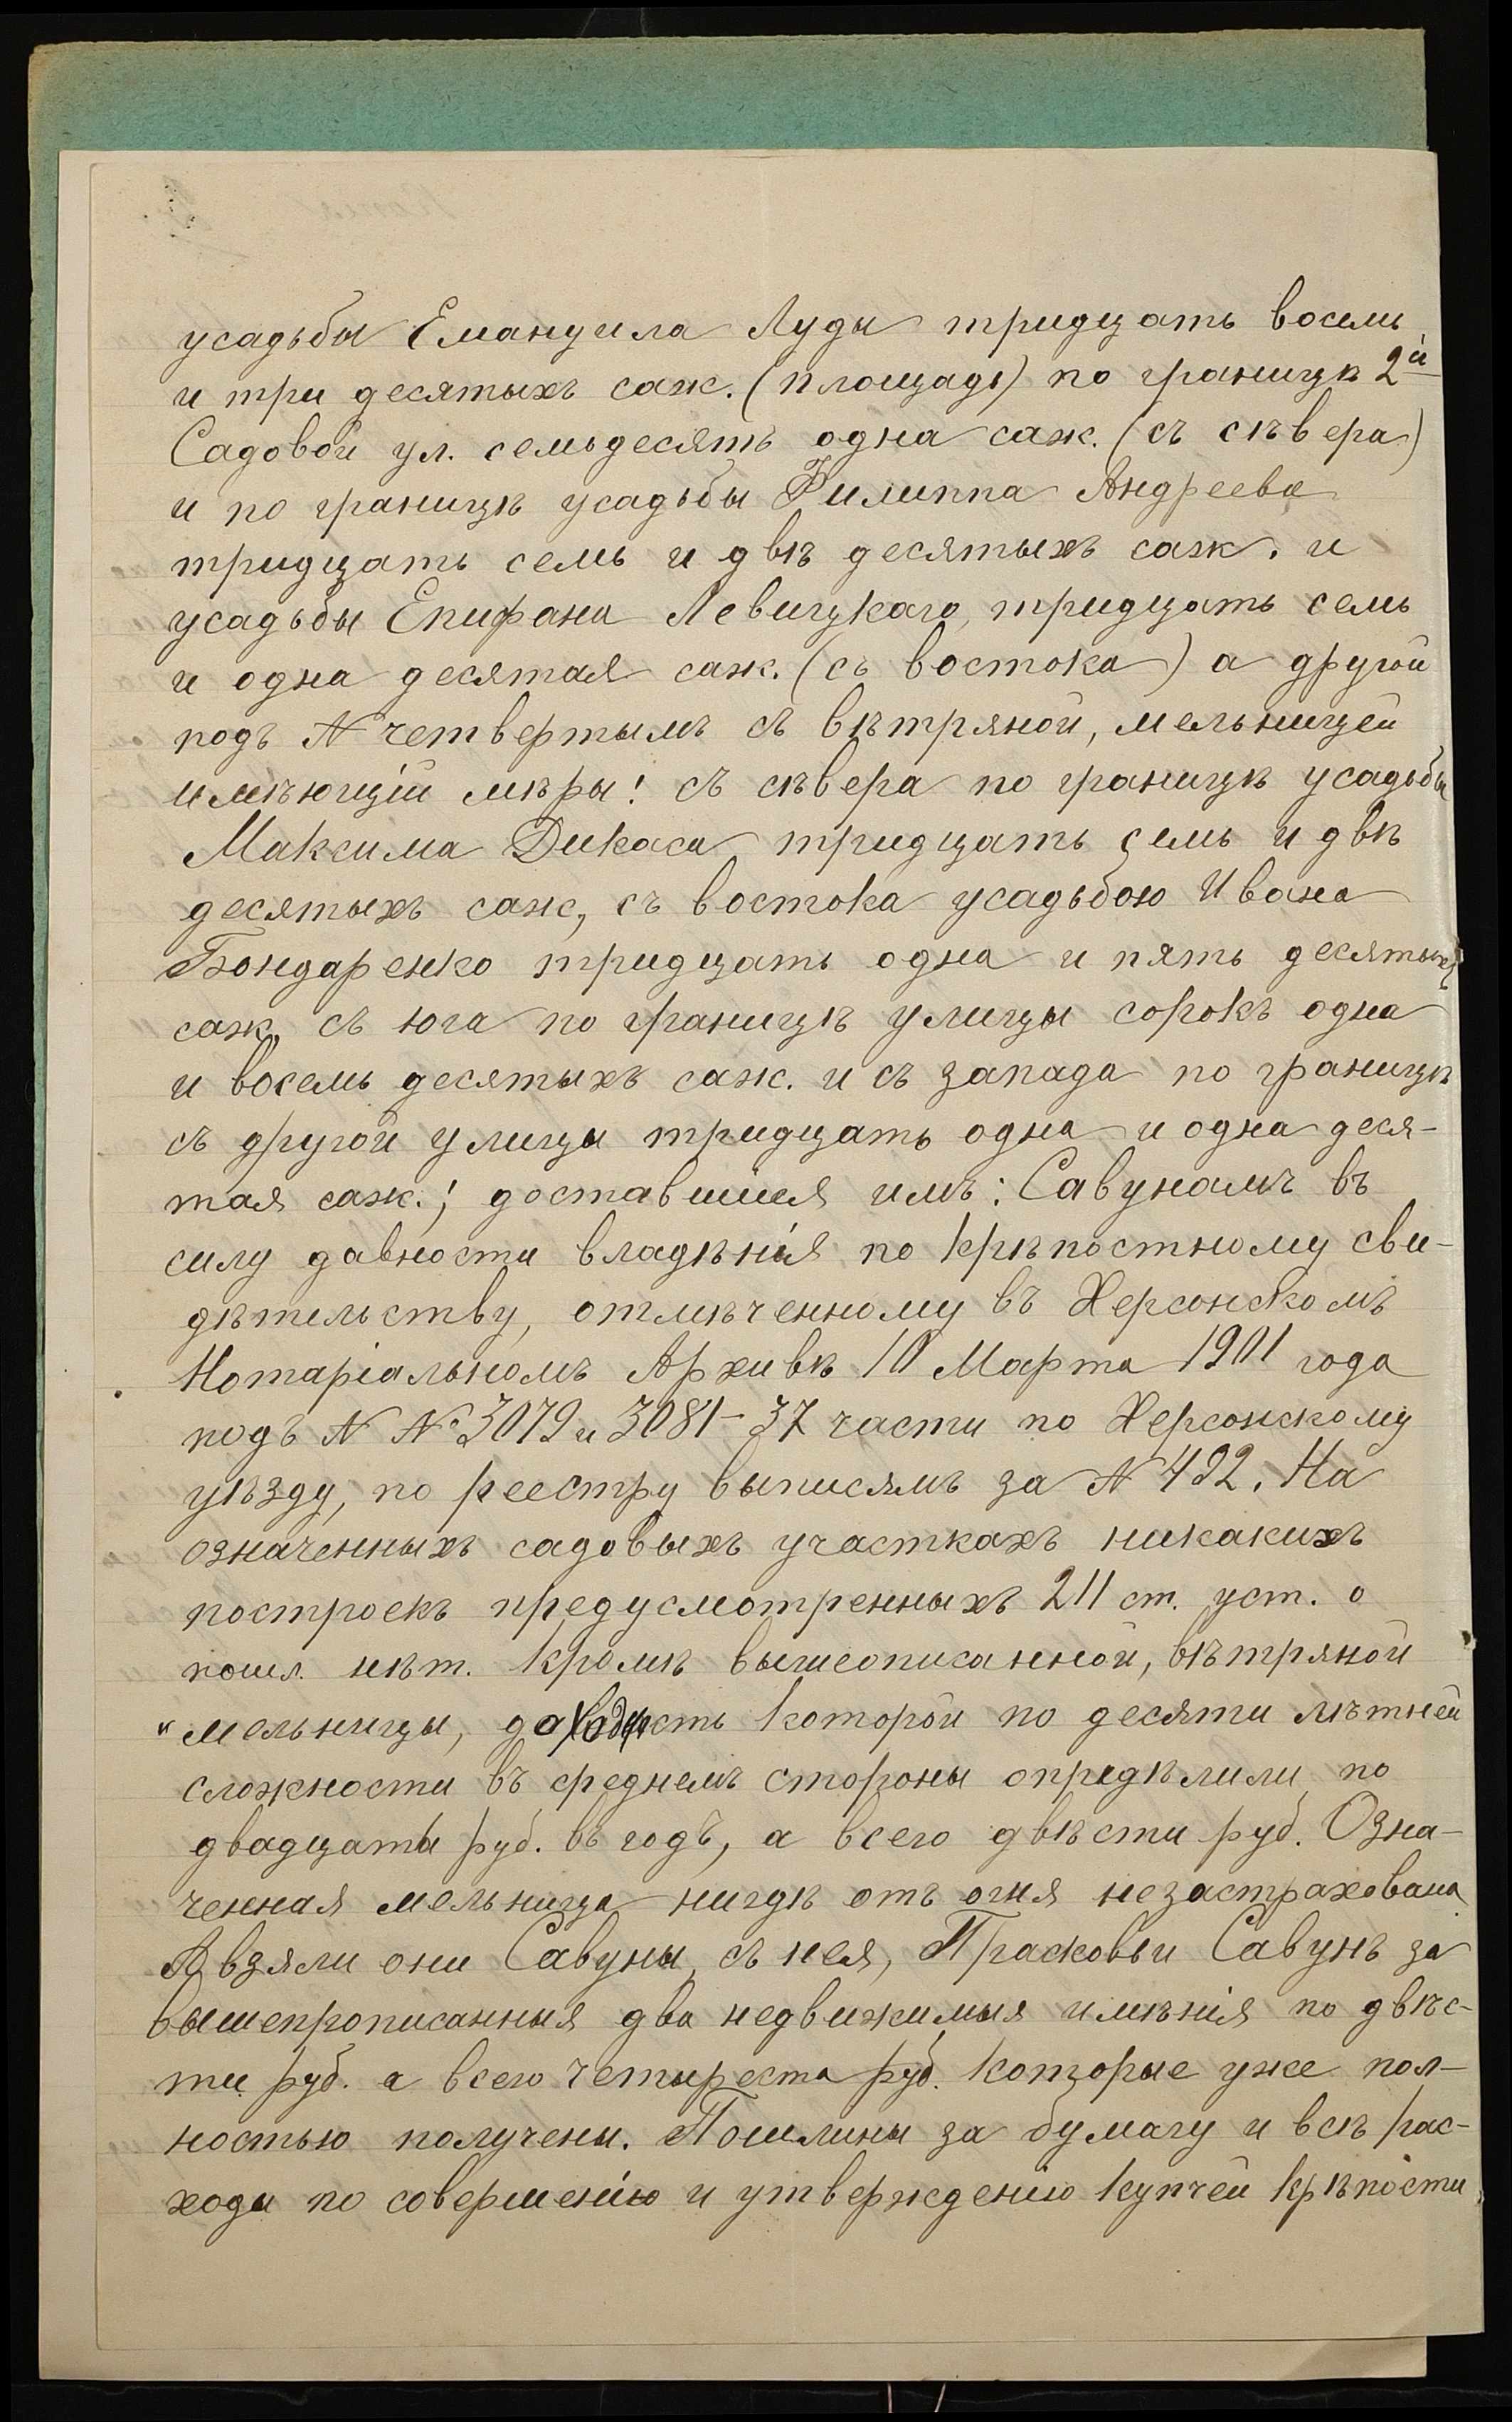 усадьбы Емануила Луды тридцать восемь
и три десятыхъ саж. (площадь) по границѣ 2й
Садовой ул. семьдесятъ одна саж. (съ сѣвера)
и по границѣ усадьбы Филиппа Андреева
тридцать семь и двѣ десятыхъ саж. и
усадьбы Епифана Левицкаго, тридцать семь
и одна десятая саж. (съ востока) а другой
подъ № четвертымъ съ вѣтряной, мельницей
имѣющій мѣры: съ сѣвера по границѣ усадьбы
Максима Дикаса тридцать семь и двѣ
десятыхъ саж, съ востока усадьбою Ивана
Бондаренко тридцать одна и пять десятыхъ
саж, съ юга по границѣ улицы сорокъ одна
и восемь десятыхъ саж. и съ запада по границѣ
съ другой улицы тридцать одна и одна деся-
тая саж.; доставшiеся имъ: Савунамъ въ
силу давности владѣнія по крѣпостному сви-
дѣтельству, отмѣченному въ Херсонскомъ
Нотаріальномъ Архивѣ 10 Марта 1901 года
подъ № № 3079 и 3081-37 части по Херсонскому
уѣзду, по реестру выписямъ за № 492. На
означенныхъ садовыхъ участкахъ никакихъ
построекъ предусмотренныхъ 211 ст. уст. о
пошл. нѣт. кромѣ вышеописанной, вѣтряной
"мельницы, доходность которой по десяти лѣтней
сложности въ среднемъ стороны опредѣлили по
двадцаты руб. въ годъ, а всего двѣсти руб. Озна-
ченная мельница нигдѣ отъ огня незастрахована
А взяли они Савуны, съ нея, Прасковьи Савунъ за
вышепрописанныя два недвижимыя имѣнія по двѣс-
ти руб. а всего четыреста руб. которые уже пол-
ностью получены. Пошлины за бумагу и всѣ рас-
ходы по совершенію и утвержденію купчей крѣпости